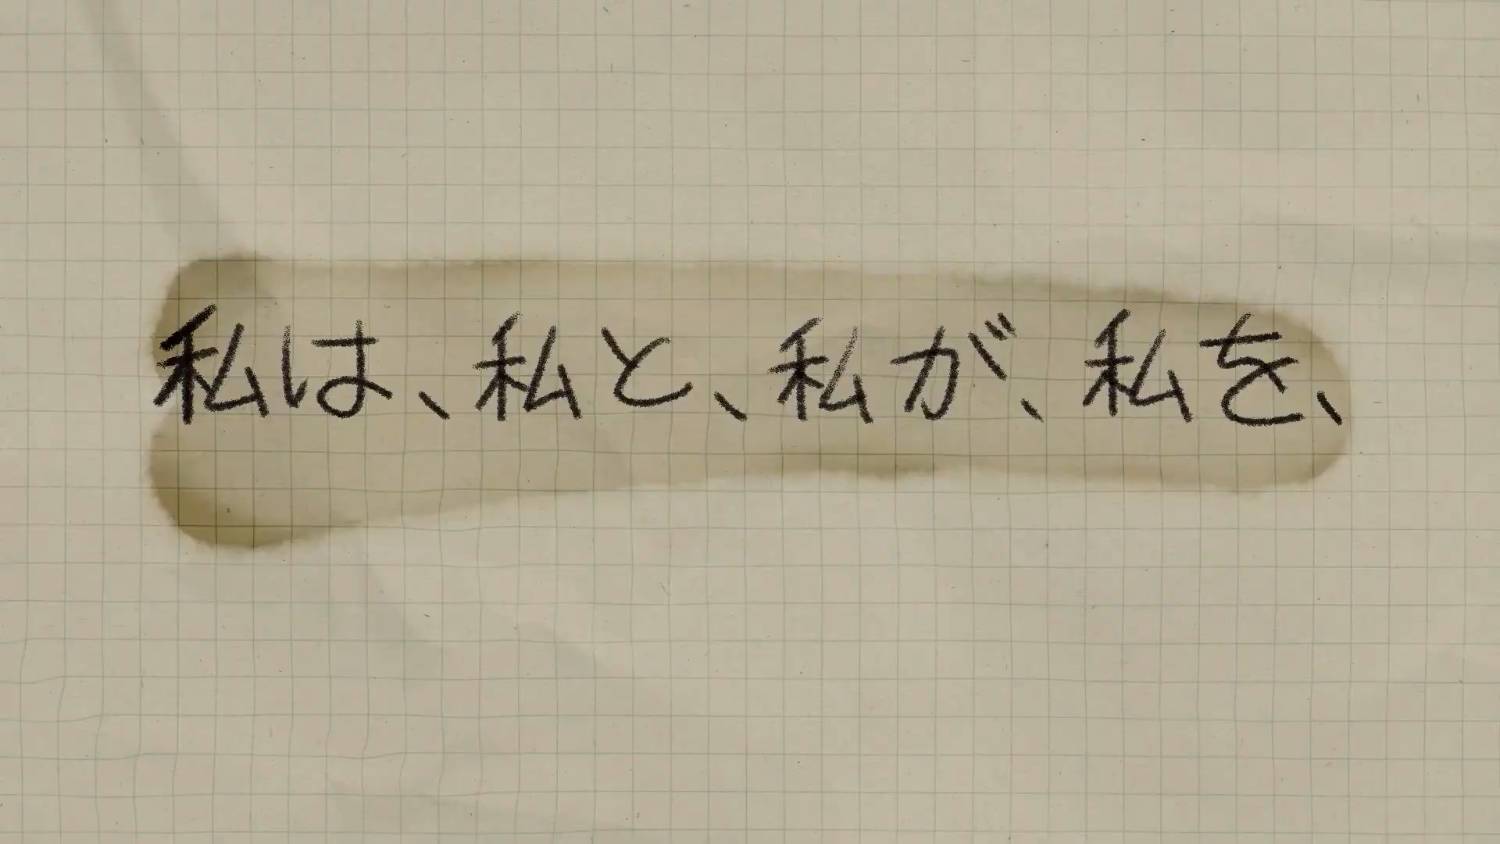 私は、私と、私が、私を、